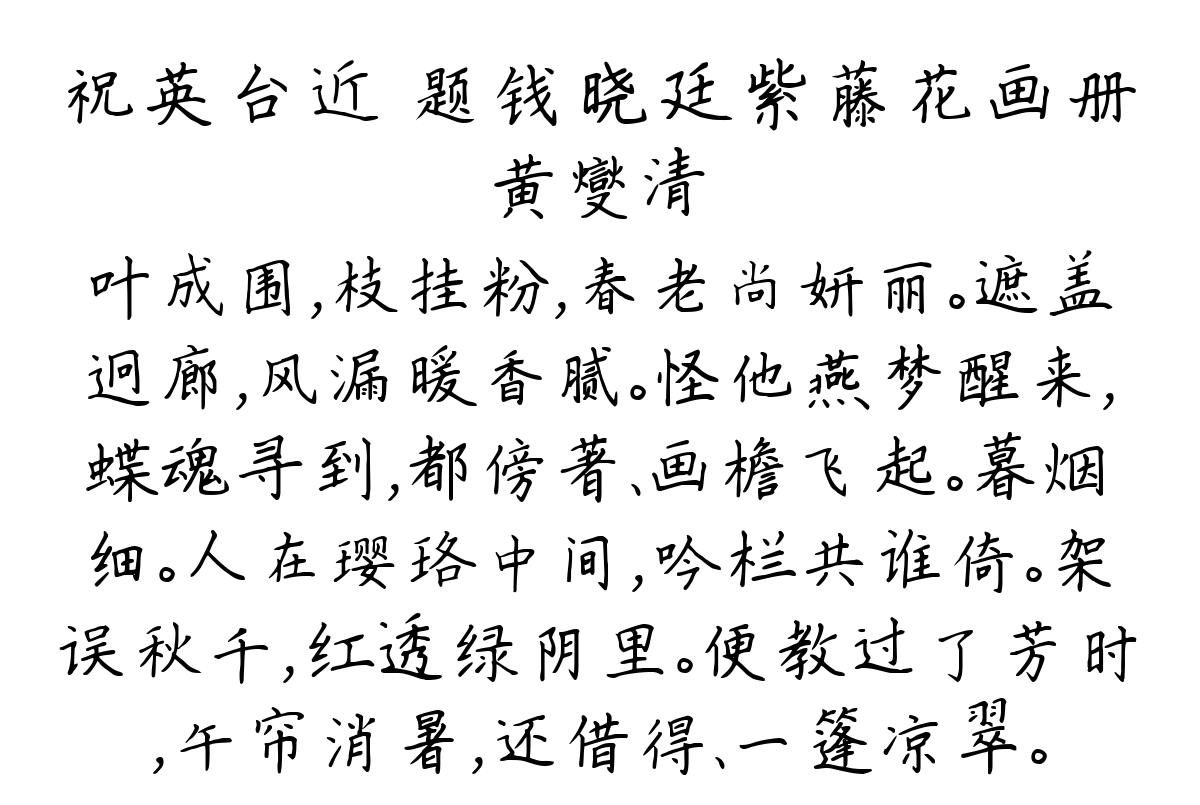 祝英台近 题钱晓廷紫藤花画册
黄燮清
叶成围,枝挂粉,春老尚妍丽。遮盖
迥廊,风漏暖香腻。怪他燕梦醒来,
蝶魂寻到,都傍著、画檐飞起。暮烟
细。人在璎珞中间,吟栏共谁倚。架
误秋千,红透绿阴里。便教过了芳时
,午帘消暑,还借得、一篷凉翠。